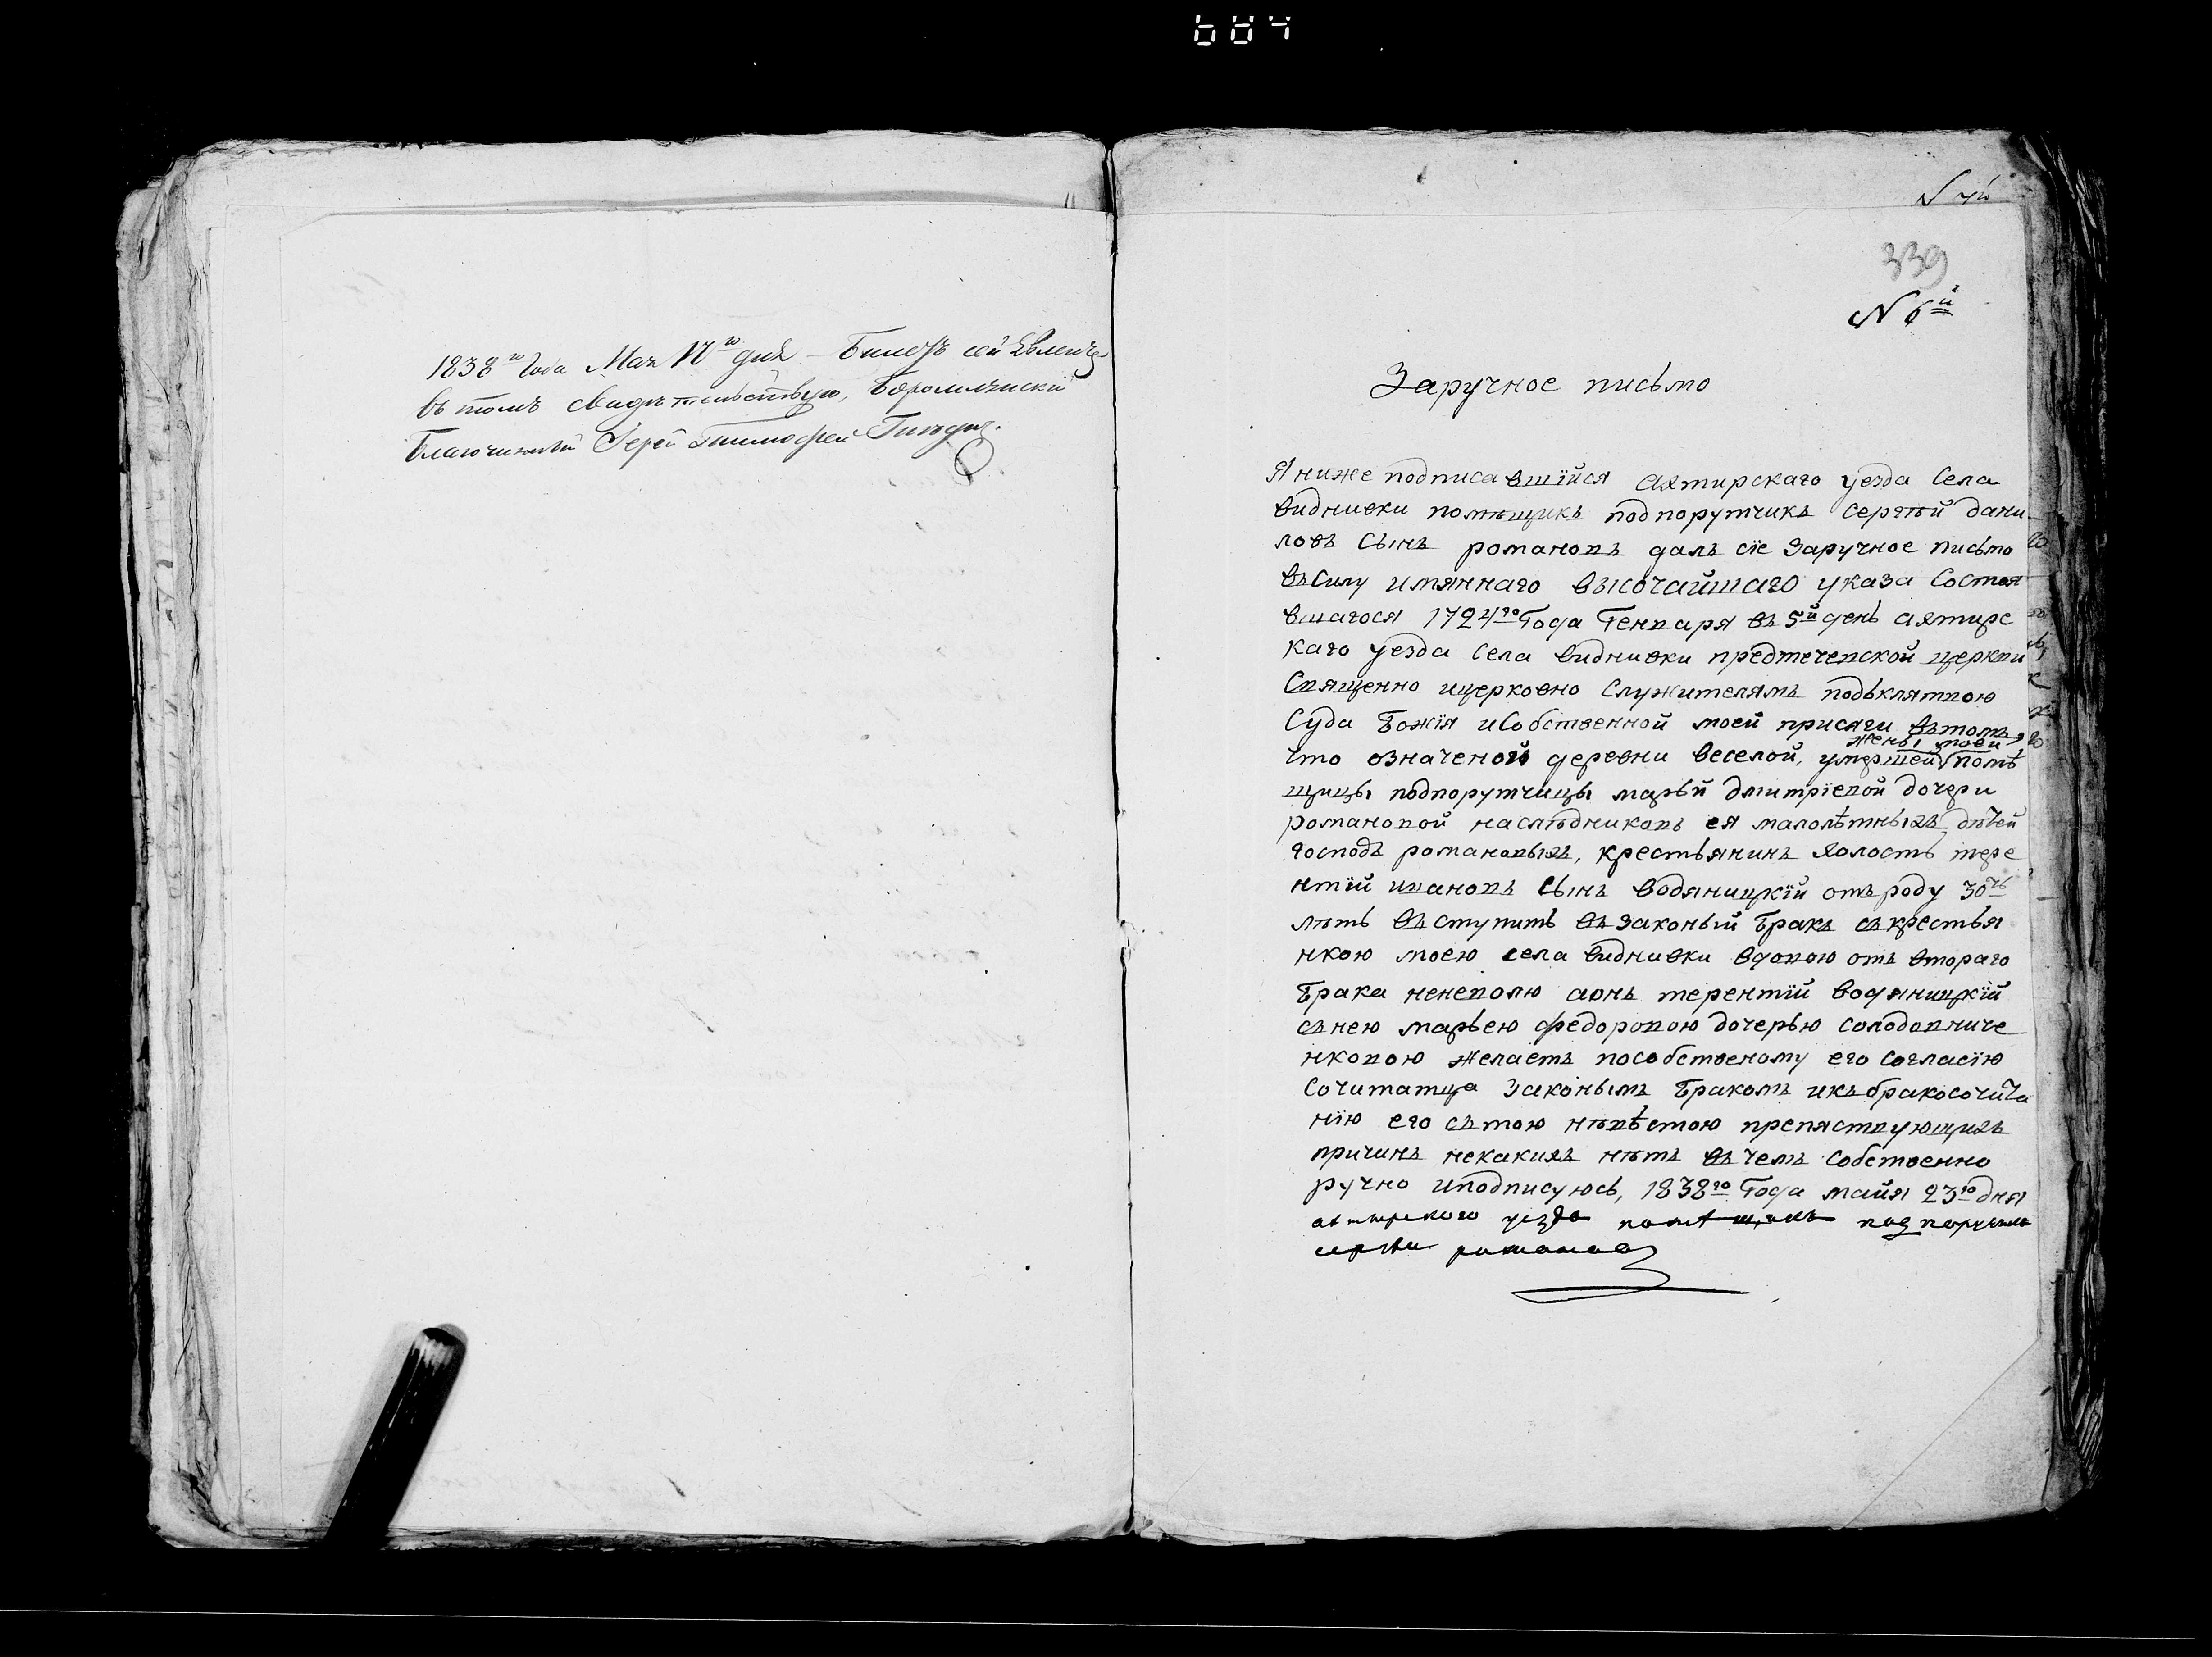 1838го Года Мая 17го дня – Билетъ сей явленъ
въ томъ свидѣтельствую, Боромлянскій
Благочинный Іерей Тимофей
339
N 6й
Заручное письмо
Я ниже подписавшійся Ахтирскаго уезда Села
видниеки помѣщикъ подпорутчикъ Сергѣй дани
ловъ Сынъ романовъ далъ сіе Заручное письмо
въ Силу имяннаго высочайшаго указа Состоя
вшагося 1724го Года Генваря въ 5й день ахтирс
каго уезда Села видниеки предтечевской церкви
Священно ицерковно Служителямъ подъклятвою
Суда Божія иСобственной моей присяги втомъ,
жены моей
Что означеной деревни веселой, умершей помѣ
щицы подпорутчицы марьи дмитріевой дочери
романовой наслѣдниковъ ея малолѣтныхъ дѣтей
господъ романовыхъ, крестьянинъ холостъ тере
нтій ивановъ Сынъ водяницкій отъ роду 30ть
лѣтъ въступить въ законый Бракъ съкрестья
нкою моею села видниеки вдовою отъ втораго
Брака неневолю аонъ терентій водяницкій
снею марьею федоровою дочерью солодовниче
нковою желаетъ пособственому его согласію
Сочитатца Законымъ Бракомъ икъбракосочита
нію его стою нѣвѣстою препяствующихъ
причинъ некакихъ нѣтъ въ чемъ Собственно
ручно иподписуюсь, 1838го Года майя 23го дня
ахтырского уезда помѣщикъ подпорутчикъ
сергѣи романовъ